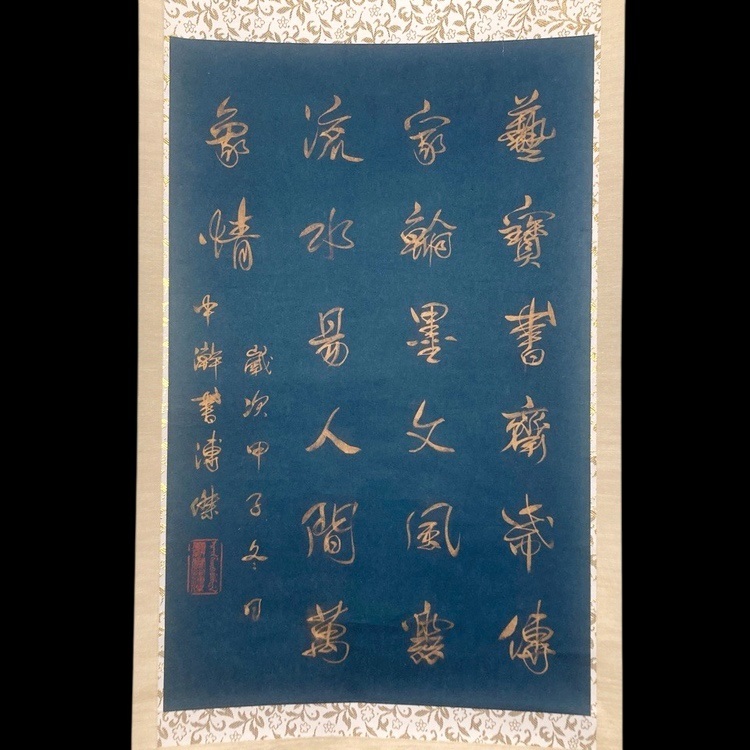 藝寶書齋傳
家翰墨文風
流水易人間萬
象情
歲次甲子冬月
中澣書溥傑